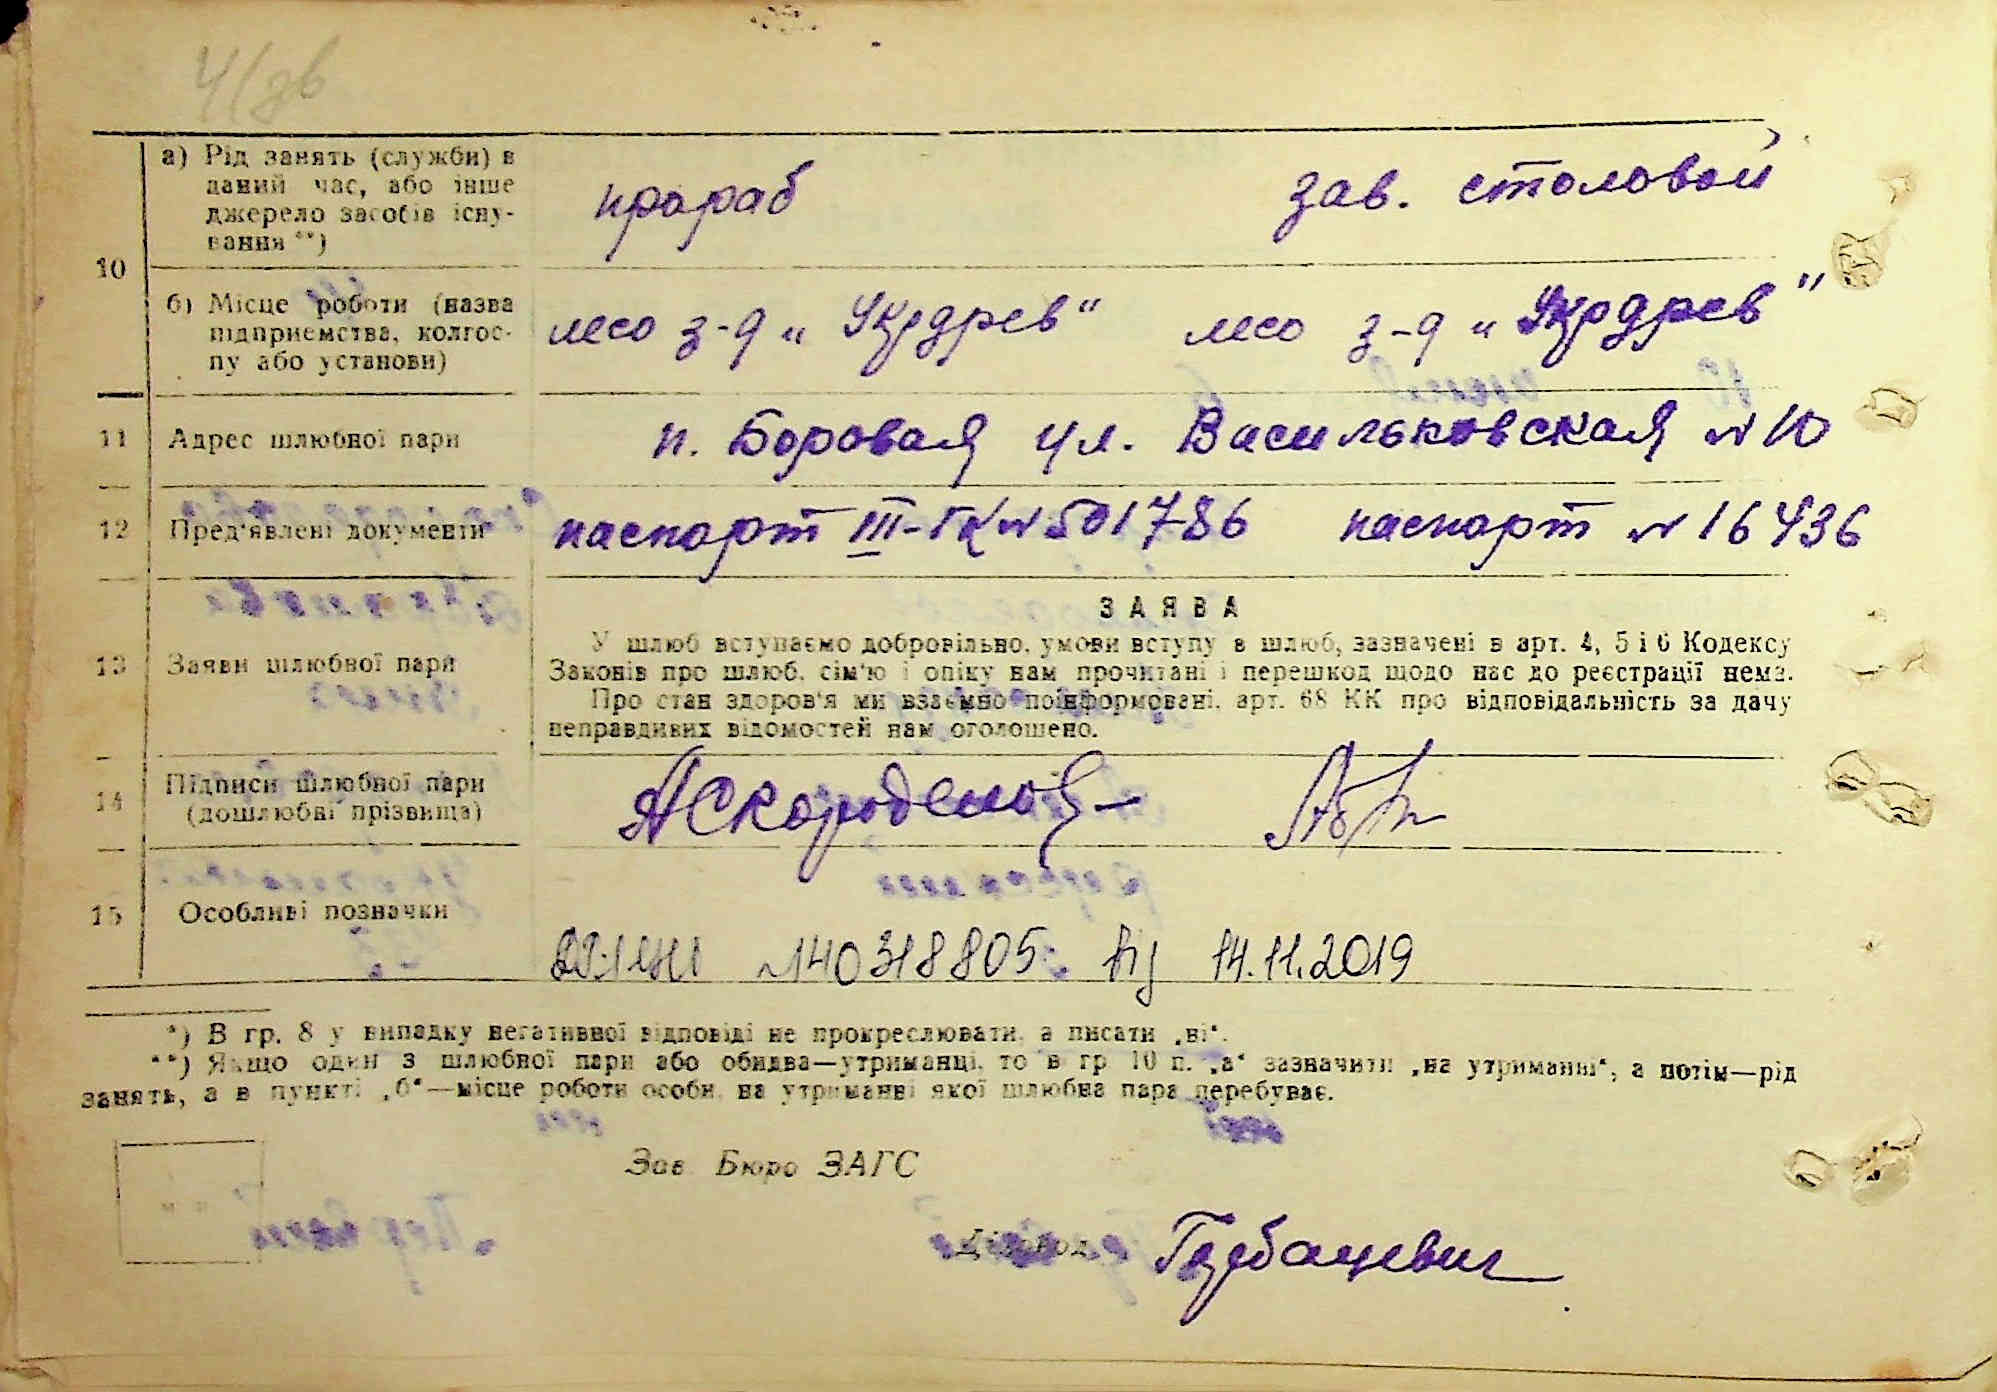 4/дв
а) Рід занять (служби) в
даний час, або інше
джерело засобів існу-
вання **)
прораб зав. столовой
10
б) Місце роботи (назва
підприємства, колгос-
пу або установи)
лесо з-д „Укрдрев“ лесо з-д „Укрдрев“
11 Адрес шлюбної пари п. Боровая ул. Васильковская N 10
12 Пред'явлені документи паспорт III-ГК N 501786 паспорт N 16436
ЗАЯВА
13 Заяви шлюбної пари
У шлюб вступаємо добровільно, умови вступу в шлюб, зазначені в арт. 4, 5 і 6 Кодексу
Законів про шлюб, сім'ю і опіку нам прочитані і перешкод щодо нас до реєстрації нема.
Про стан здоров'я ми взаємно поінформовані, арт. 68 КК про відповідальність за дачу
неправдивих відомостей нам оголошено.
14 Підписи шлюбної пари
(дошлюбні прізвища)
15 Особливі позначки
N 140318805 від 14.11.2019
*) В гр. 8 у випадку негативної відповіді не прокреслювати, а писати „ні“.
**) Якщо один з шлюбної пари або обидва—утриманці, то в гр 10 п. „а“ зазначити „на утриманні“, а потім—рід
занять, а в пункті „б“—місце роботи особи, на утриманні якої шлюбна пара перебуває.
Зав. Бюро ЗАГС
М П
Діловод